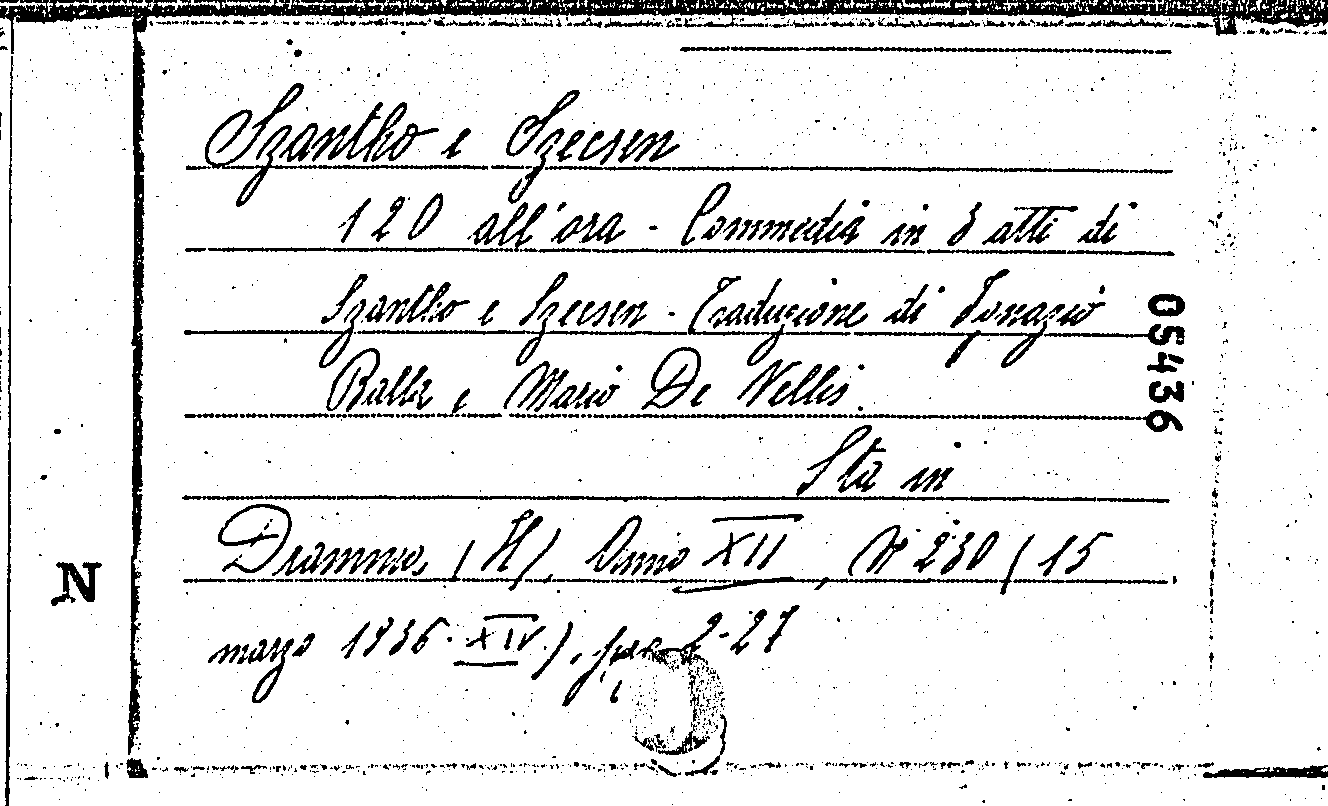 Szantho e Szecsen
120 all'ora - Commedia in 3 atti di
Szantho e Szecsen - Traduzione di Ignazio
Balla e Mario De Vellis.
Sta in
Dramma, (Il), Anno XII, N° 230 (15
marzo 1936 - XIV), pag 2-27
05436
N